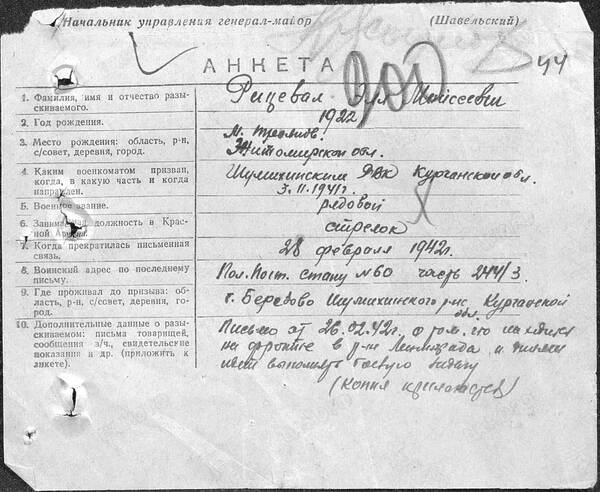 Начальник управления генерал-майор (Шавельский)
44
АНКЕТА
1. Фамилия, имя и отчество разы-
скиваемого.
Рицевал Эля Мойсеевич
2. Год рождения.
1922
3. Место рождения: область, р-н,
с/совет, деревня, город.
м.
Житомирской обл.
4. Каким военкоматом призван,
когда, в какую часть и когда
направлен.
Шумихинским РВК Курганской обл.
3.II.1941г.
5. Военное звание.
рядовой
6. Занимаемая должность в Крас-
ной Армии.
стрелок
7. Когда прекратилась письменная
связь.
28 февраля 1942г.
8. Воинский адрес по последнему
письму.
Пол. Почт. стану №60 часть 244/3.
9. Где проживал до призыва: об-
ласть, р-н, с/совет, деревня, го-
род.
Березово Шумихинского р-на Курганской
обл.
10. Дополнительные данные о разы-
скиваемом: письма товарищей,
сообщения з/ч., свидетельские
показания и др. (приложить к
анкете).
Письмо от 26.02.42г. о том, что находился
на фронте в р-не Ленинграда и
выполнять боевую задачу
(Копия прилагается)